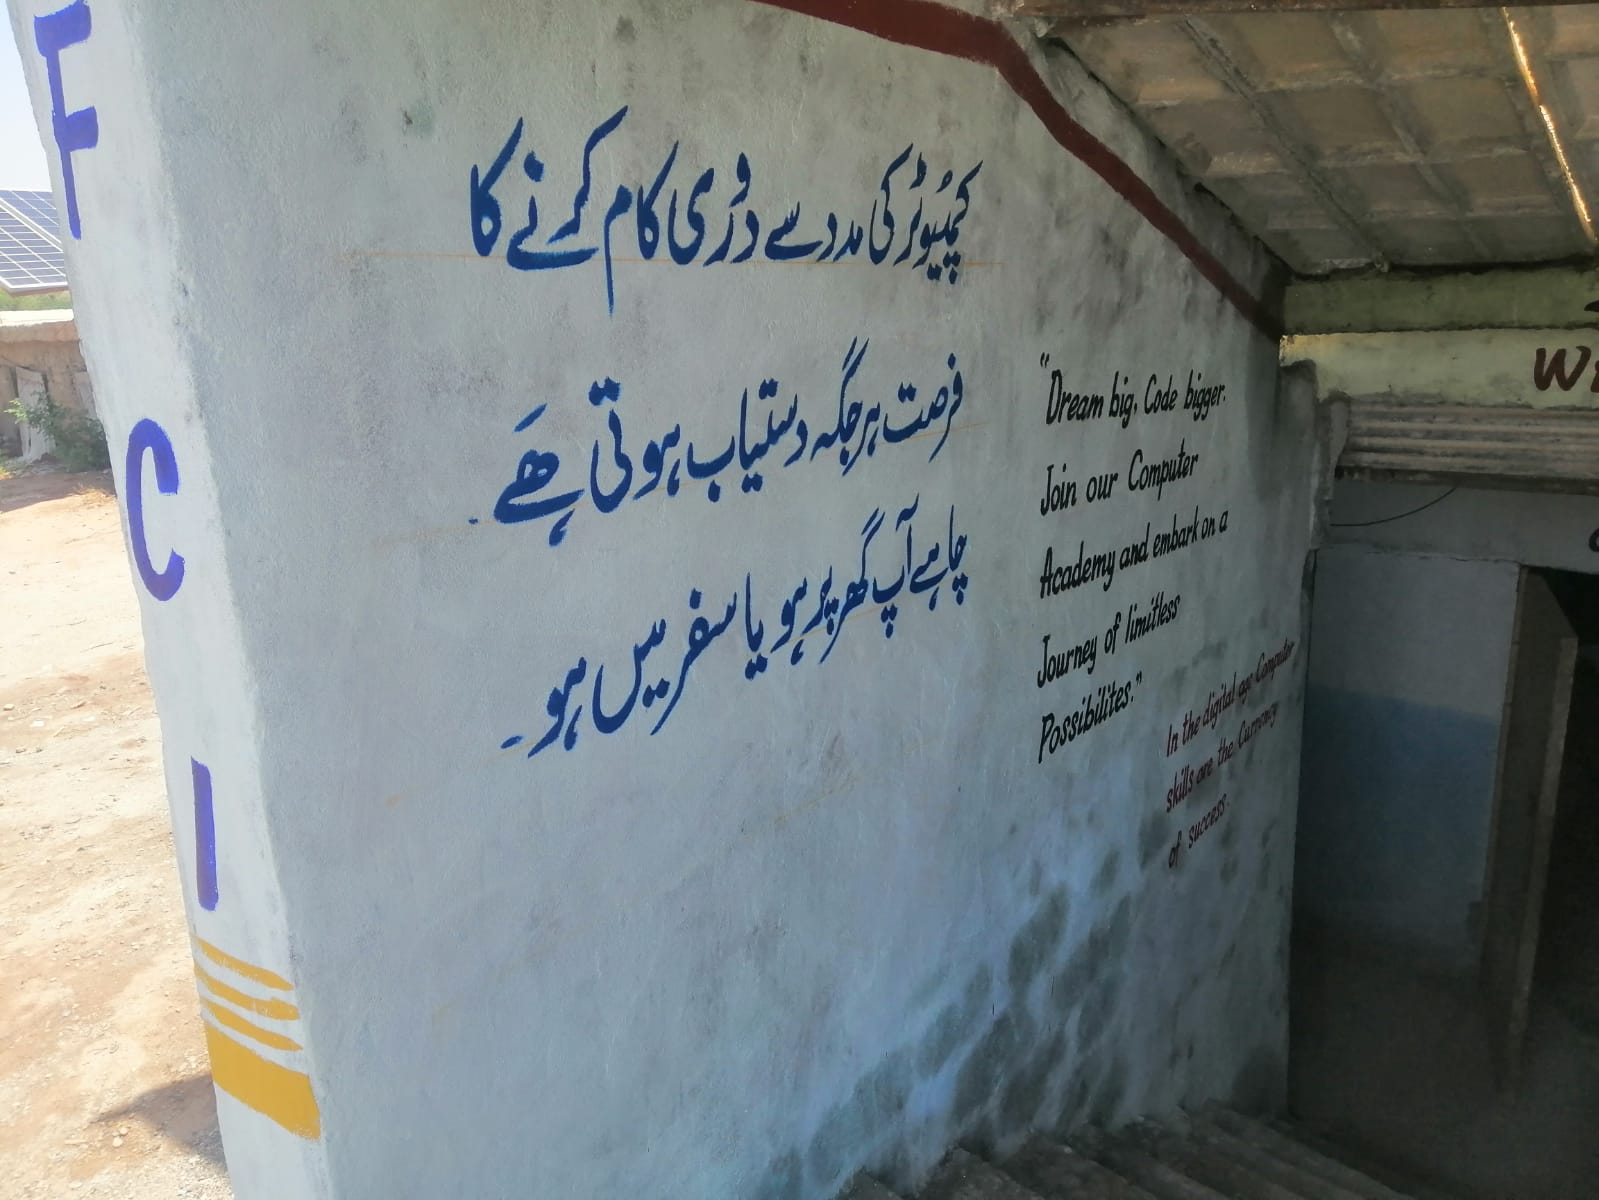 F
C
I
کمپیوٹر کی مدد سے دُوری کام کرنے کا
فرصت ہر جگہ دستیاب ہوتی ھَے ۔
چاہے آپ گھر پر ہو یا سفر میں ہو ۔
"Dream big, Code bigger.
Join our Computer
Academy and embark on a
Journey of limitless
Possibilites."
In the digital age Computer
skills are the Currency
of success.